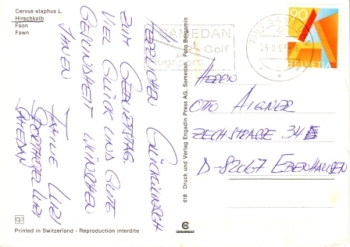 Cervus elaphus L.
Hirschkalb
Faon
Fawn
HERZLICHEN GLÜCKWUNSCH
ZUM GEBURTSTAG,
VIEL GLÜCK UND GUTE
GESUNDHEIT WÜNSCHEN
IHNEN
FAMILIE
SPORTHOTEL
SAMEDAN
Printed in Switzerland - Reproduction interdite
618 Druck und Verlag Engadin Press AG, Samedan. Foto Benjamin
SAMEDAN
Golf
90
HELVETIA
HERRN
OTTO AIGNER
ZECHSTRASSE 34
D-82067 EBENHAUSEN